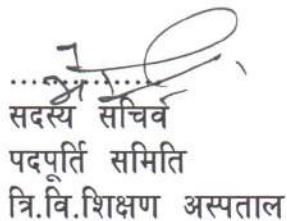 सदस्य सचिव
पदपूर्ति समिति
त्रि.वि.शिक्षण अस्पताल